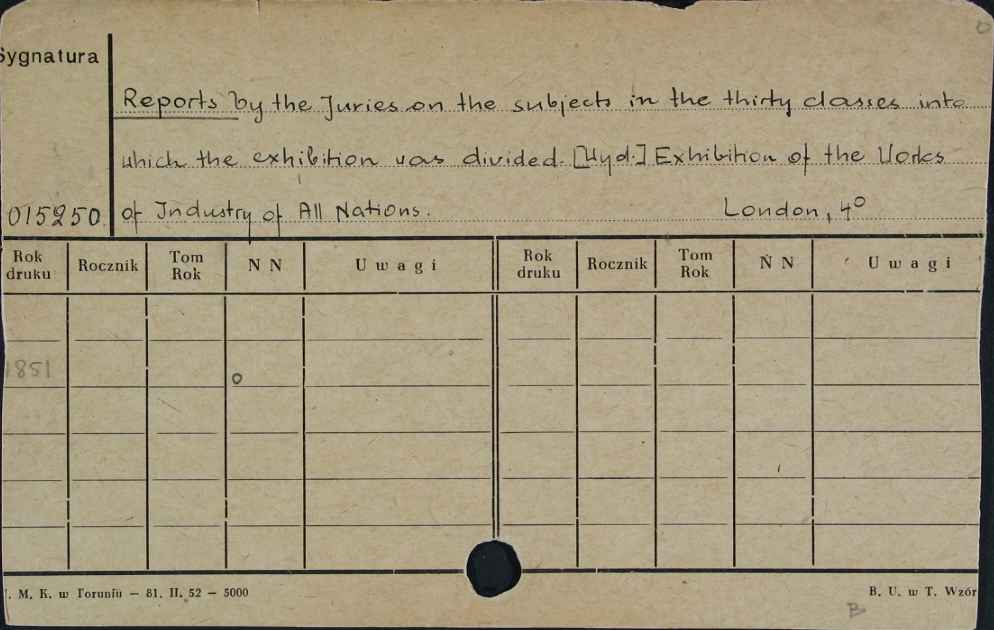 Sygnatura
Reports by the Juries on the subjects in the thirty classes into
which the exhibition was divided. [Wyd.] Exhibition of the Works
015250 of Industry of All Nations. London, 4°
Rok druku Rocznik Tom Rok N N Uwagi Rok druku Rocznik Tom Rok N N Uwagi
1851
. M. K. w Toruniu — 81. II. 52 — 5000 B. U. w T. Wzór
B